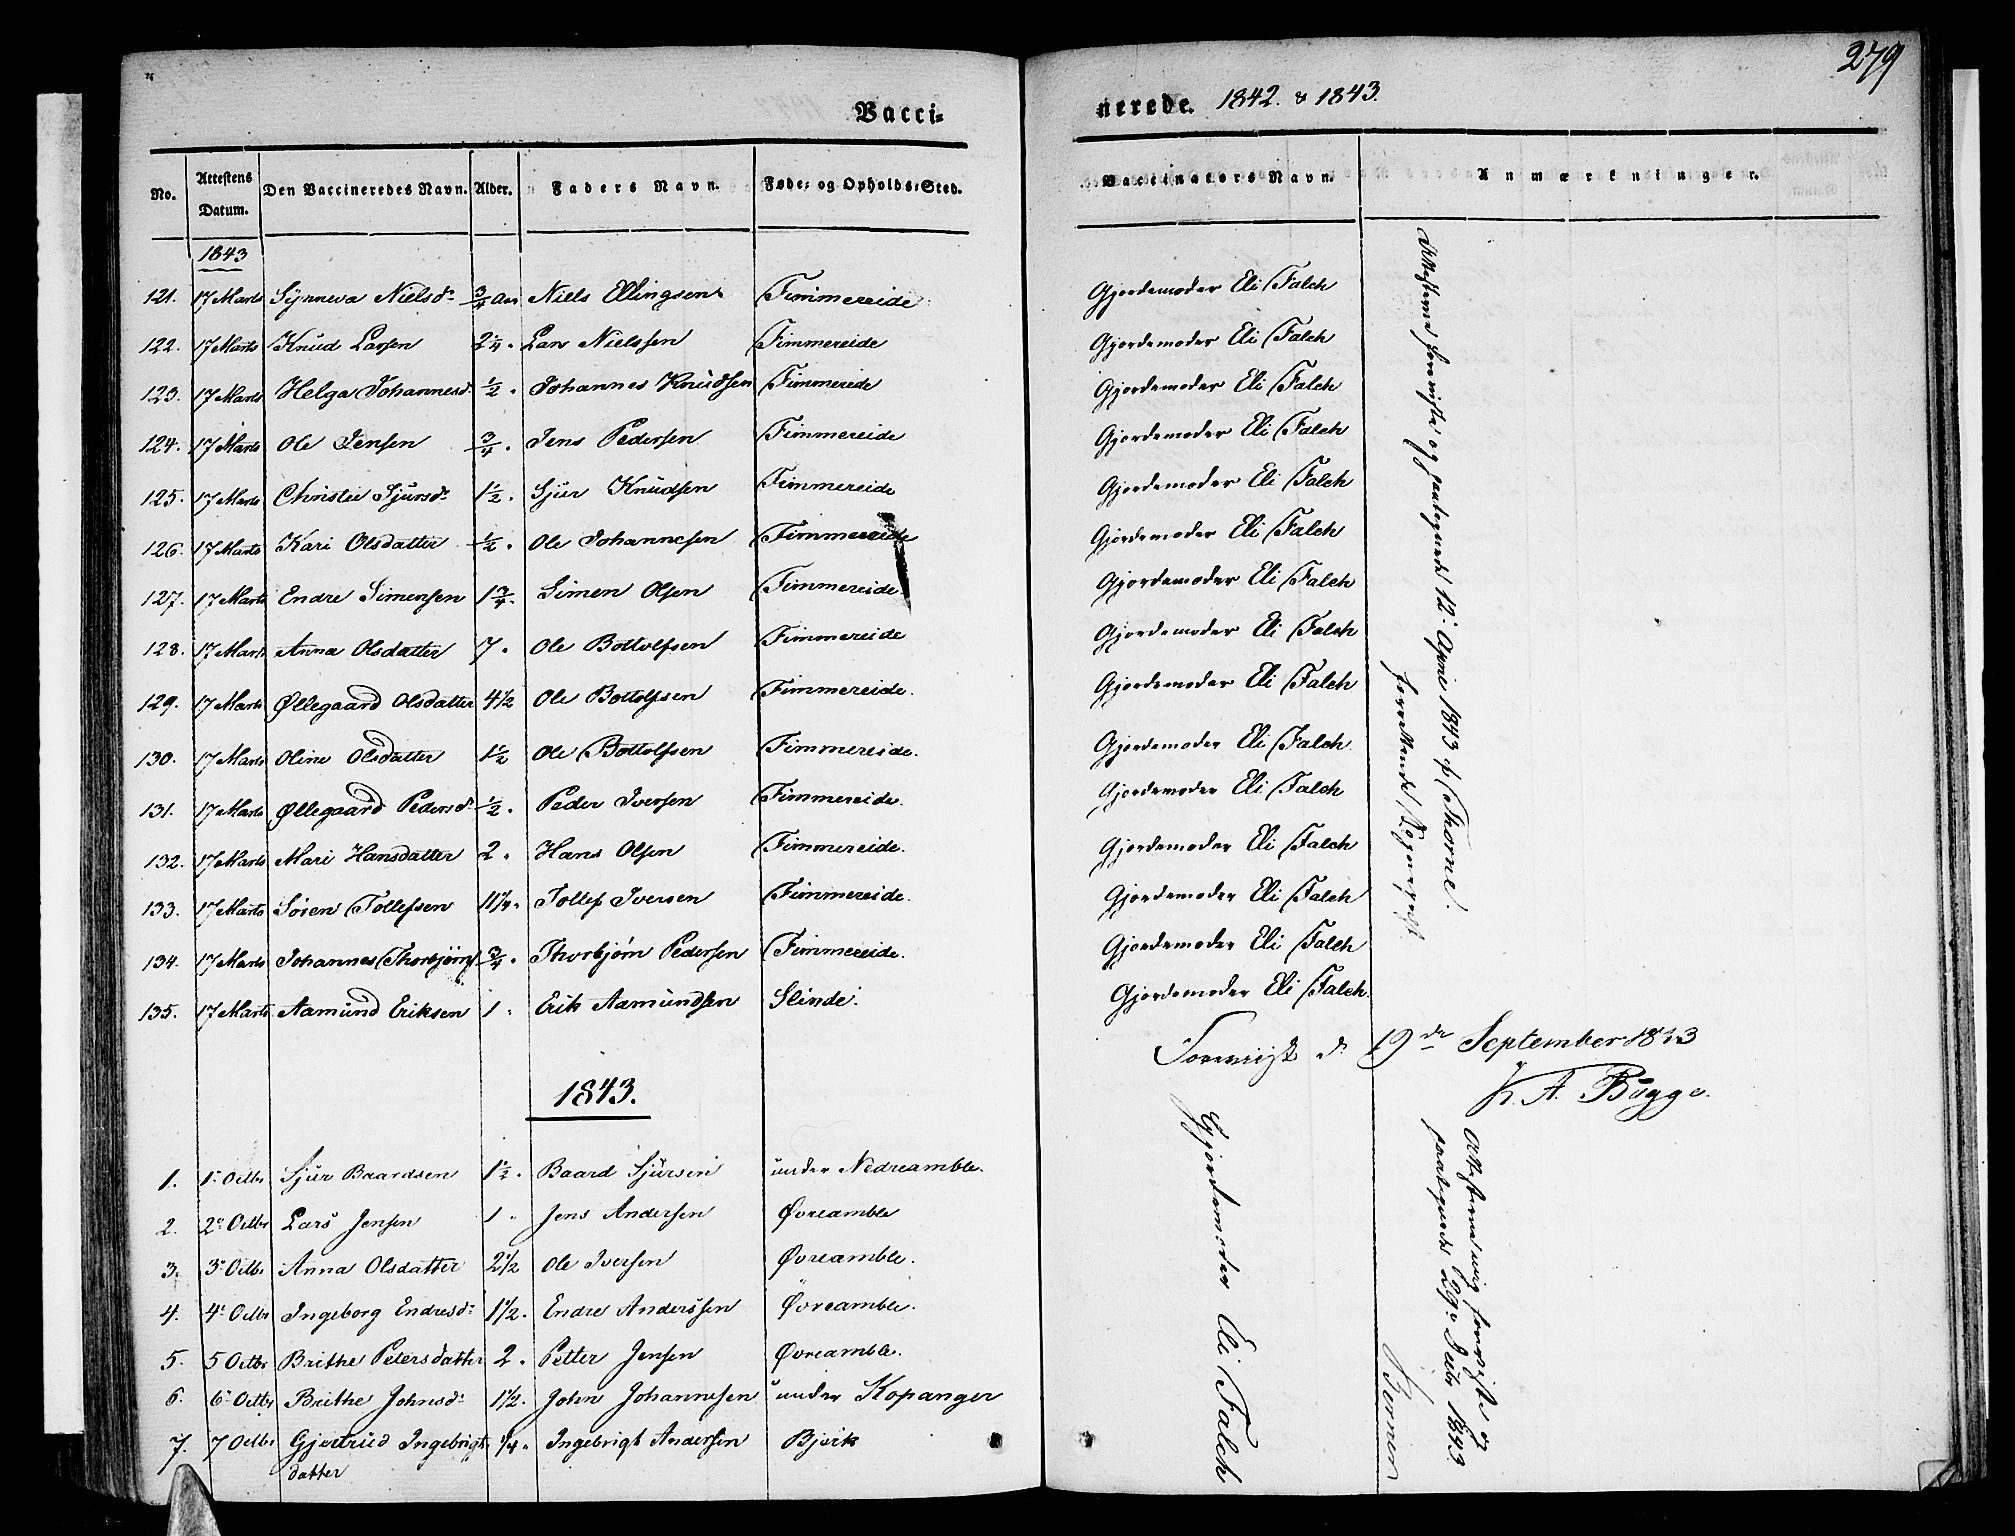 279
Vacci-
nerede. 1842. & 1843.
No. Attestens Datum. Den Vaccineredes Navn. Alder. Faders Navn. Føde- og Opholds-Sted. Vaccinators Navn. Anmærkninger.
1843
121. 17 Marts Synneva Nielsd: 3/4 aar Niels Ellingsen Fimmereide Gjordemoder Eli Falch
122. 17 Marts Knud Larsen 2 1/4. Lars Nielssen Fimmereide Gjordemoder Eli Falch
123. 17 Marts Helga Johannesd: 1/2. Johannes Knudsen Fimmereide Gjordemoder Eli Falch
124. 17 Marts Ole Jensen 3/4. Jens Pedersen Fimmereide Gjordemoder Eli Falch
125. 17 Marts Christie Sjursd: 1 1/2. Sjur Knudsen Fimmereide Gjordemoder Eli Falch
126. 17 Marts Kari Olsdatter 1/2. Ole Johannesen Fimmereide Gjordemoder Eli Falch
127. 17 Marts Endre Simensen 1 3/4. Simen Olsen Fimmereide. Gjordemoder Eli Falch
128. 17 Marts Anna Olsdatter 7. Ole Bottolfsen Fimmereide Gjordemoder Eli Falch
129. 17 Marts Øllegaard Olsdatter 4 1/2 Ole Bottolfsen Fimmereide. Gjordemoder Eli Falch
130. 17 Marts Oline Olsdatter 1 1/2 Ole Bottolfsen Fimmereide. Gjordemoder Eli Falch
131. 17 Marts Øllegaard Pedersd: 1/2. Peder Iversen Fimmereide. Gjordemoder Eli Falch
132. 17 Marts Mari Hansdatter 2. Hans Olsen Fimmereide. Gjordemoder Eli Falch
133. 17 Marts Søren Tollefsen 1 1/4. Tollef Iversen Fimmereide. Gjordemoder Eli Falch
134. 17 Marts Johannes Thorbjørns 3/4. Thorbjørn Pedersen Fimmereide. Gjordemoder Eli Falch
135. 17 Marts Aamund Eriksen 1. Erik Aamundsen Slinde. Gjordemoder Eli Falch.
Attesterne foreviste og paategnede 12. April 1843 af Thorne.
Foreviist d. 19de September 1843
K. A. Bugge.
1843.
1. 1. Octbr Sjur Baardsen 1 1/2. Baard Sjursen under Nedreamble.
2. 2. Octbr Lars Jensen 1 Jens Andersen Øvreamble
3. 3. Octbr Anna Olsdatter 2 1/2 Ole Iversen Øvreamble.
4. 4. Octbr Ingeborg Endresd: 1 1/2. Endre Anderssen Øvreamble.
5. 5 Octbr Brithe Petersdatter 2. Petter Jensen Øvreamble.
6. 6. Octbr Brithe Johnsd: 1 1/2. John Johannesen under Kopanger
7. 7 Octbr Gjertrud Ingebrigt 1/4. Ingebrigt Andersen Bjork
datter
Gjordemoder Eli Falch
Attesterne foreviste og
paategnede 1843